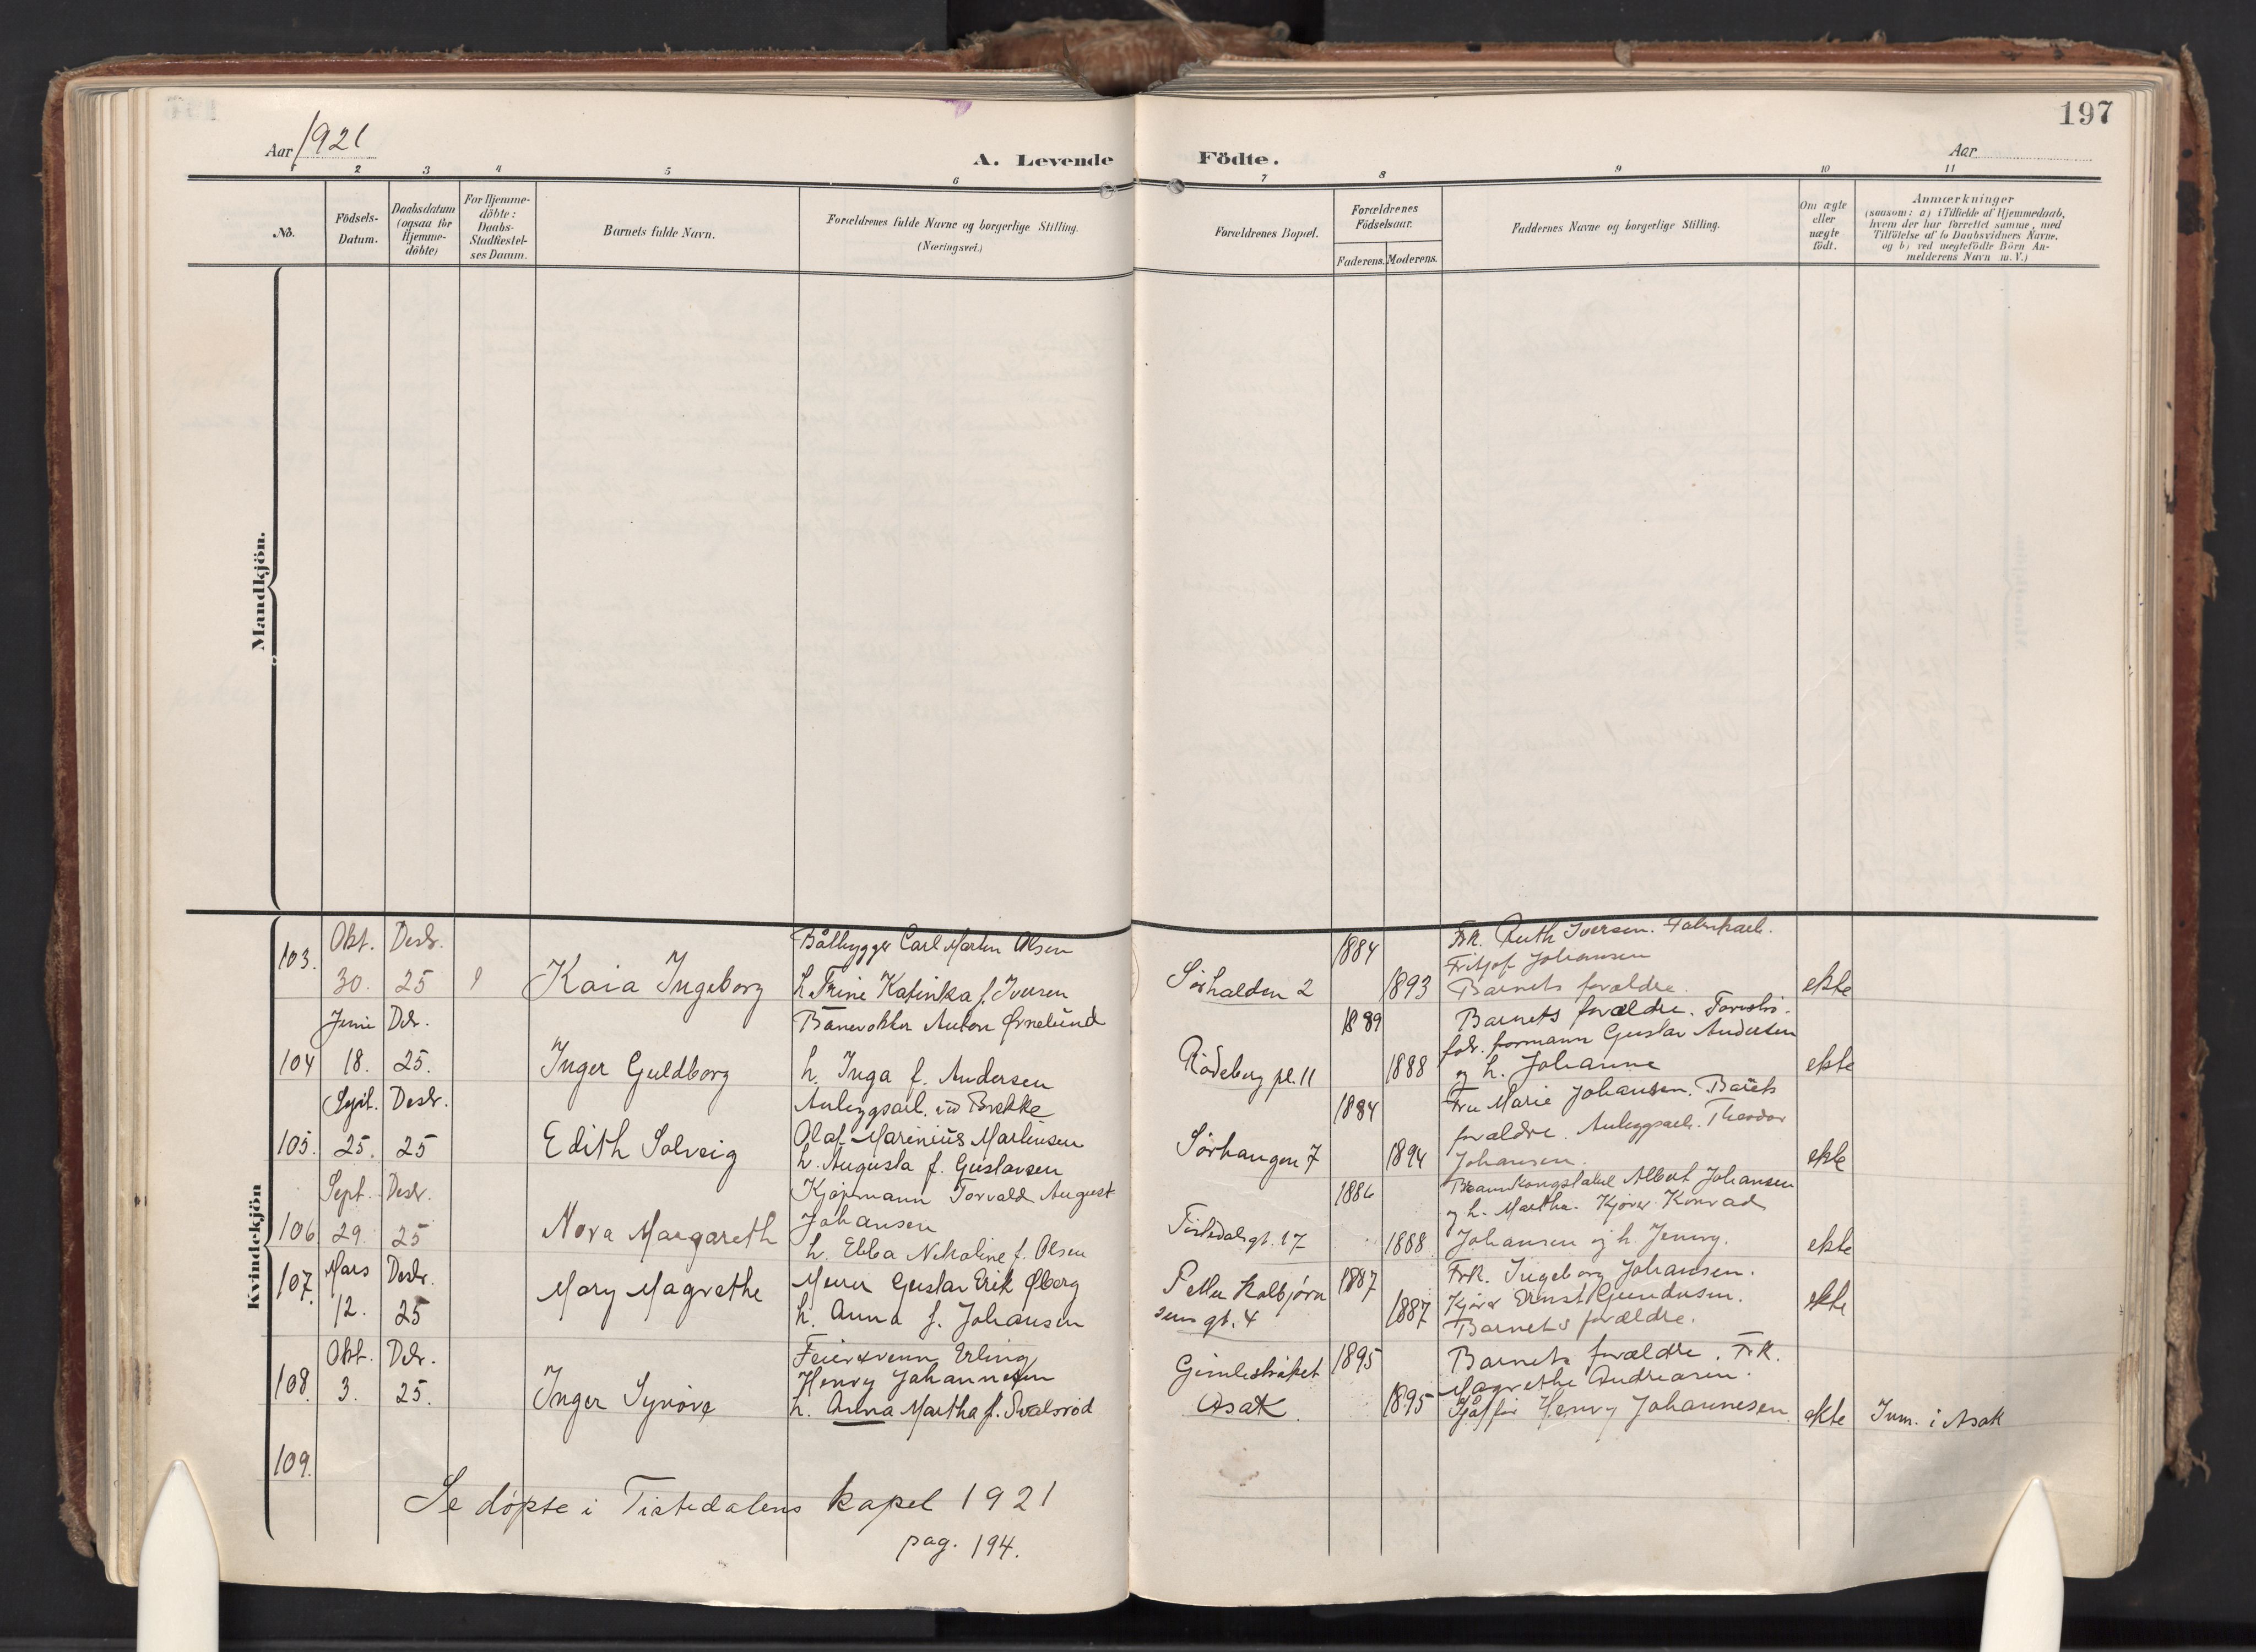 197
Aar 1921
A. Levende Födte.
Aar
1 2 3 4 5 6 7 8 9 10 11
No.
Födsels-
Datum.
Daabsdatum
(ogsaa for
Hjemme-
döbte)
For Hjemme-
döbte:
Daabs-
Stadfæstel-
ses Datum.
Barnets fulde Navn.
Forældrenes fulde Navne og borgerlige Stilling.
(Næringsvei.)
Forældrenes Bopæl.
Forældrenes
Födselsaar.
Faderens. Moderens.
Faddernes Navne og borgerlige Stilling.
Om ægte
eller
uægte
födt.
Anmærkninger
(saasom: a) i Tilfælde af Hjemmedaab,
hvem der har forrettet samme, med
Tilföielse af to Daabsvidners Navne,
og b) ved uægtefödte Börn An-
melderens Navn m. V.)
Mandkjön.
Kvindekjön
103. Okt. 30. Desbr. 25
Kaia Ingeborg
Båtbygger Carl Martin Olsen
h. Trine Katinka f. Iversen
Sørhalden 2
1884
1893
Frk. Ruth Iversen. Fabrikarb.
Fritjof Johansen
Barnets forældre.
ekte
104 Juni 18. Dbr. 25.
Inger Guldborg
Banevokter Anton Ørnelund
h. Inga f. Andersen
Rødsberg pl. 11
1889
1888
Barnets forældre.
formann Gustav Andersen
og h. Johanne
ekte
105. Sept. 25. Desbr. 25
Edith Solveig
Anlegsarb. ved Brekke
Olaf Marinius Martinsen
h. Augusta f. Gustavsen
Sørhaugen 7
1884
1894
Fru Marie Johansen. Barnets
forældre. Anleggsarb. Theodor
Johansen.
ekte
106 Sept. 29. Desbr. 25
Nora Margareth
Kjøpmann Torvald August
Johansen
h. Ebba Nikoline f. Olsen
Tistedalsgt. 17
1886
1888
Albert Johansen
og h. Martha. Kjører Konrad
Johansen og h. Jenny.
ekte
107. Mars 12. Desbr. 25
Mary Magrethe
Murer Gustav Erik Øberg
h. Anna f. Johansen
Petter Kolbjørn
sens gt. 4
1887
1887
Frk. Ingeborg Johansen.
Kjører Ernst Gundersen.
Barnets forældre.
ekte
108. Okt. 3. Dbr. 25.
Inger Synøve
Feiersvenn Erling
Henry Johannesen
h. Anna Martha f. Svalerød
Gimlestrøket
Asak.
1895
1895
Barnets forældre. Frk.
Magrethe Andreasen.
Sjåffør Henry Johannesen
ekte
Inm. i Asak
109.
Se døpte i Tistedalens kapel 1921
pag. 194.